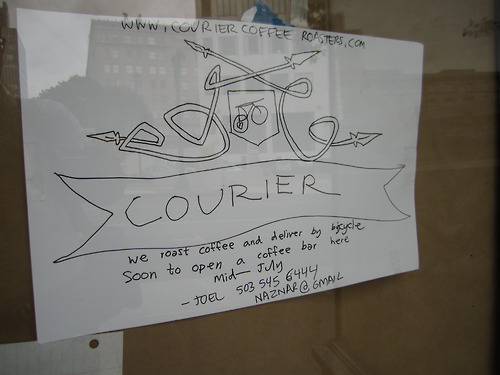 WWW.COURIERCOFFEE ROASTERS.COM
COURIER
we roast coffee and deliver by bicycle
Soon to open a coffee bar here
mid-July
-JOEL 503 545 6444
NAZNAR@GMAIL